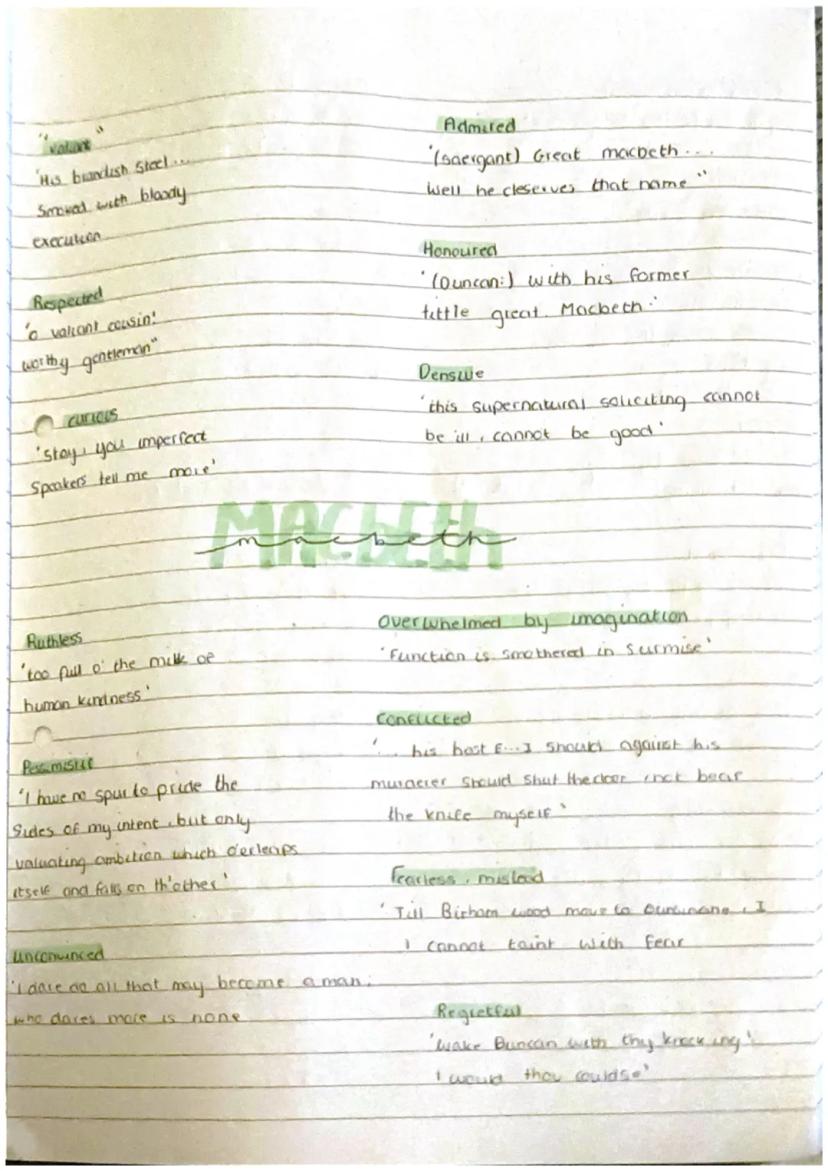 "valiant"
'His brandish Steel ...
Smoked with bloody
execution
Respected
'o valiant cousin!
worthy gentleman"
curious
'stay, you imperfect
Speakers tell me more'
Admired
'(saergant) Great macbeth ...
Well he deserves that name"
Honoured
'(Duncan:) with his former
tittle great. Macbeth.'
'this supernatural soliciting cannot
be ill, cannot be good'
MACbETH
macbeth
Ruthless
'too full o' the milk of
human kindness'
Pessimistic
'I have no spur to pride the
Sides of my intent, but only
valuating ambition which o'erleaps
itself and falls on th'other'
Unconvinced
'I dare do all that may become a man.
who dares more is none
Overwhelmed by imagination
'Function is smothered in Surmise'
Conflicted
'... his host E...I should against his
murderer should shut the door, not bear
the knife myself'
Fearless, mislead
'Till Birham wood move to , I
I cannot taint with fear
Regretful
'Wake Duncan with thy knocking'
I would thou